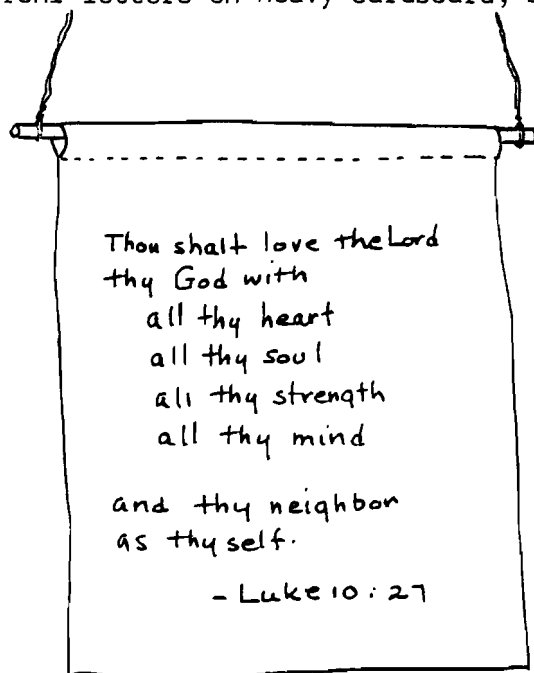 letters on heavy cardboard,
Thou shalt love the Lord
thy God with
all thy heart
all thy soul
all thy strength
all thy mind
and thy neighbor
as thyself.
- Luke 10:27